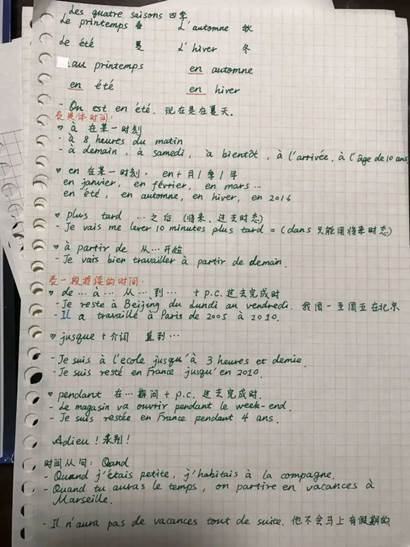 Les quatre saisons 四季
Le printemps 春 L'automne 秋
Le été 夏 L'hiver 冬
au printemps en automne
en été en hiver
- On est en été. 现在是在夏天.
表具体时间:
♡ à 在某一时刻
- à 8 heures du matin
- à demain, à samedi, à bientôt, à l'arrivée, à l'âge de 10 ans
♡ en 在某一时刻. en+月/季/年
en janvier, en février, en mars...
en été, en automne, en hiver, en 2016
♡ plus tard ...之后 (将来、过去时态)
- Je vais me lever 10 minutes plus tard = (dans 只能用将来时态)
♡ à partir de 从...开始
- Je vais bien travailler à partir de demain.
表一段时间的时间:
♡ de ... à ... 从...到... + p.c. 过去完成时
- Je reste à Beijing du lundi an vendredi. 我周一至周五在北京
- Il a travaillé à Paris de 2005 à 2010.
♡ jusque +介词 直到...
- Je suis à l'école jusqu'à 3 heures et demie.
- Je suis resté en France jusqu'en 2010.
♡ pendant 在...期间 + p.c. 过去完成时.
- Le magasin va ouvrir pendant le week-end.
- Je suis restée en France pendant 4 ans.
Adieu! 永别!
时间从句: Quand
- Quand j'étais petite, j'habitais à la compagne.
- Quand tu auras le temps, on partire en vacances à
Marseille.
- Il n'aura pas de vacances tout de suite. 他不会马上有假期的